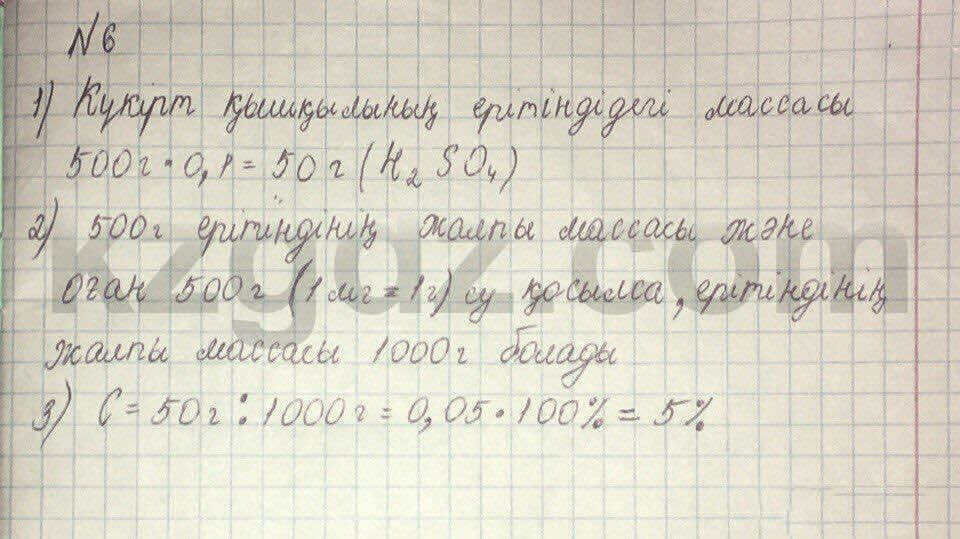 №6
1) Күкірт қышқылының ерітіндідегі массасы
500г · 0,1 = 50 г (H₂SO₄)
2) 500г ерітіндінің жалпы массасы және
оған 500г (1 мг = 1г) су қосылса, ерітіндінің
жалпы массасы 1000г болады
3) C = 50г : 1000г = 0,05 · 100% = 5%
kzgdz.com